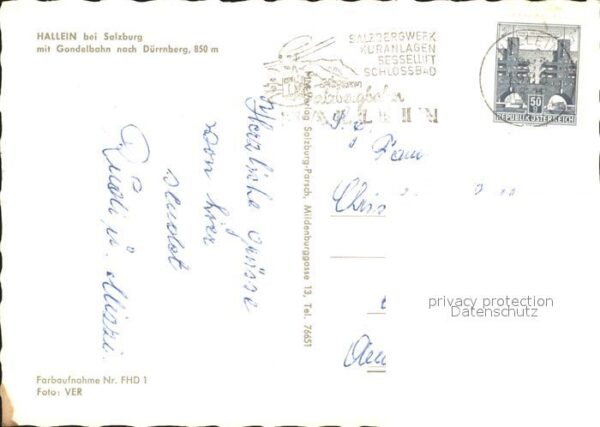 HALLEIN bei Salzburg
mit Gondelbahn nach Dürrnberg, 850 m
SALZBERGWERK
KURANLAGEN
SESSELLIFT
SCHLOSSBAD
Salzbergbahn
HALLEIN
50
REPUBLIK ÖSTERREICH
Herzliche Grüsse
von hier
sendet
Rudi u. Mizzi.
Salzburg-Parsch, Mildenburggasse 13, Tel. 76651
Fam
privacy protection
Datenschutz
Farbaufnahme Nr. FHD 1
Foto: VER